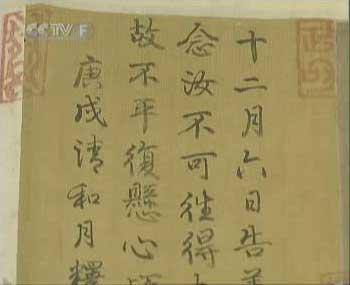 CCTV F
十二月六日告姜
念汝不可往得
故不平復懸心
庚戌清和月釋